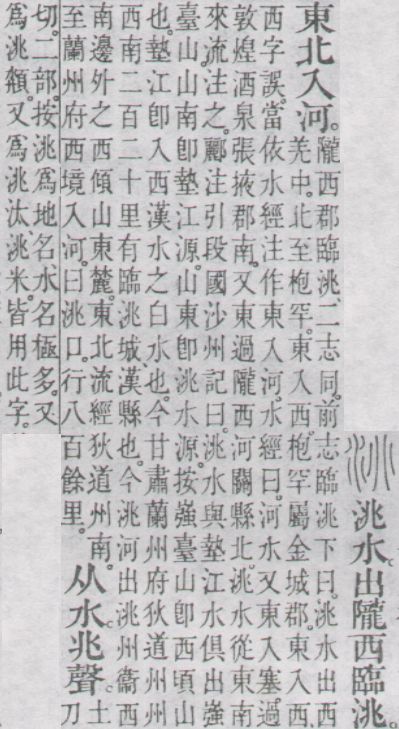 洮水。出隴西臨洮。
東北入河。
隴西郡臨洮、二志同。前志臨洮下曰。洮水出西
羌中。北至枹罕。東入西。枹罕屬金城郡。東入西、
西字誤。當依水經注作東入河。水經曰。河水又東入塞。過
敦煌酒泉張掖郡南。又東過隴西河關縣北。洮水從東南
來流注之。酈注引段國沙州記曰。洮水與墊江水俱出嵹
臺山。山南卽墊江源。山東卽洮水源。按嵹臺山卽西頃山
也。墊江卽入西漢水之白水也。今甘肅蘭州府狄道州州
西南二百二十里有臨洮城。漢縣也。今洮河出洮州衞西
南邊外之西傾山東麓。東北流經狄道州南。
至蘭州府西境入河。曰洮口。行八百餘里。
从水兆聲。
土刀
切。二部。按洮爲地名水名極多。又
爲洮頮。又爲洮汰洮米。皆用此字。